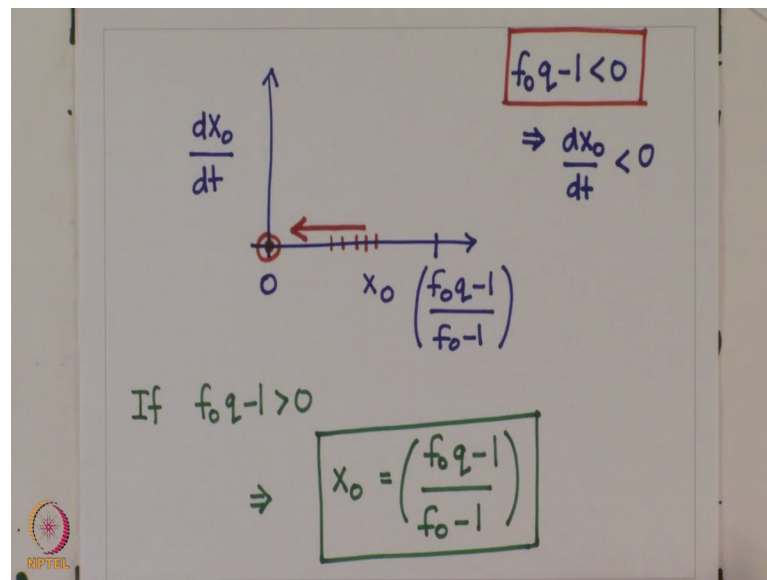 f₀q-1<0
⇒ dx₀/dt < 0
dx₀/dt
0
x₀ (f₀q-1/f₀-1)
If f₀q-1>0
⇒ x₀ = (f₀q-1/f₀-1)
NPTEL